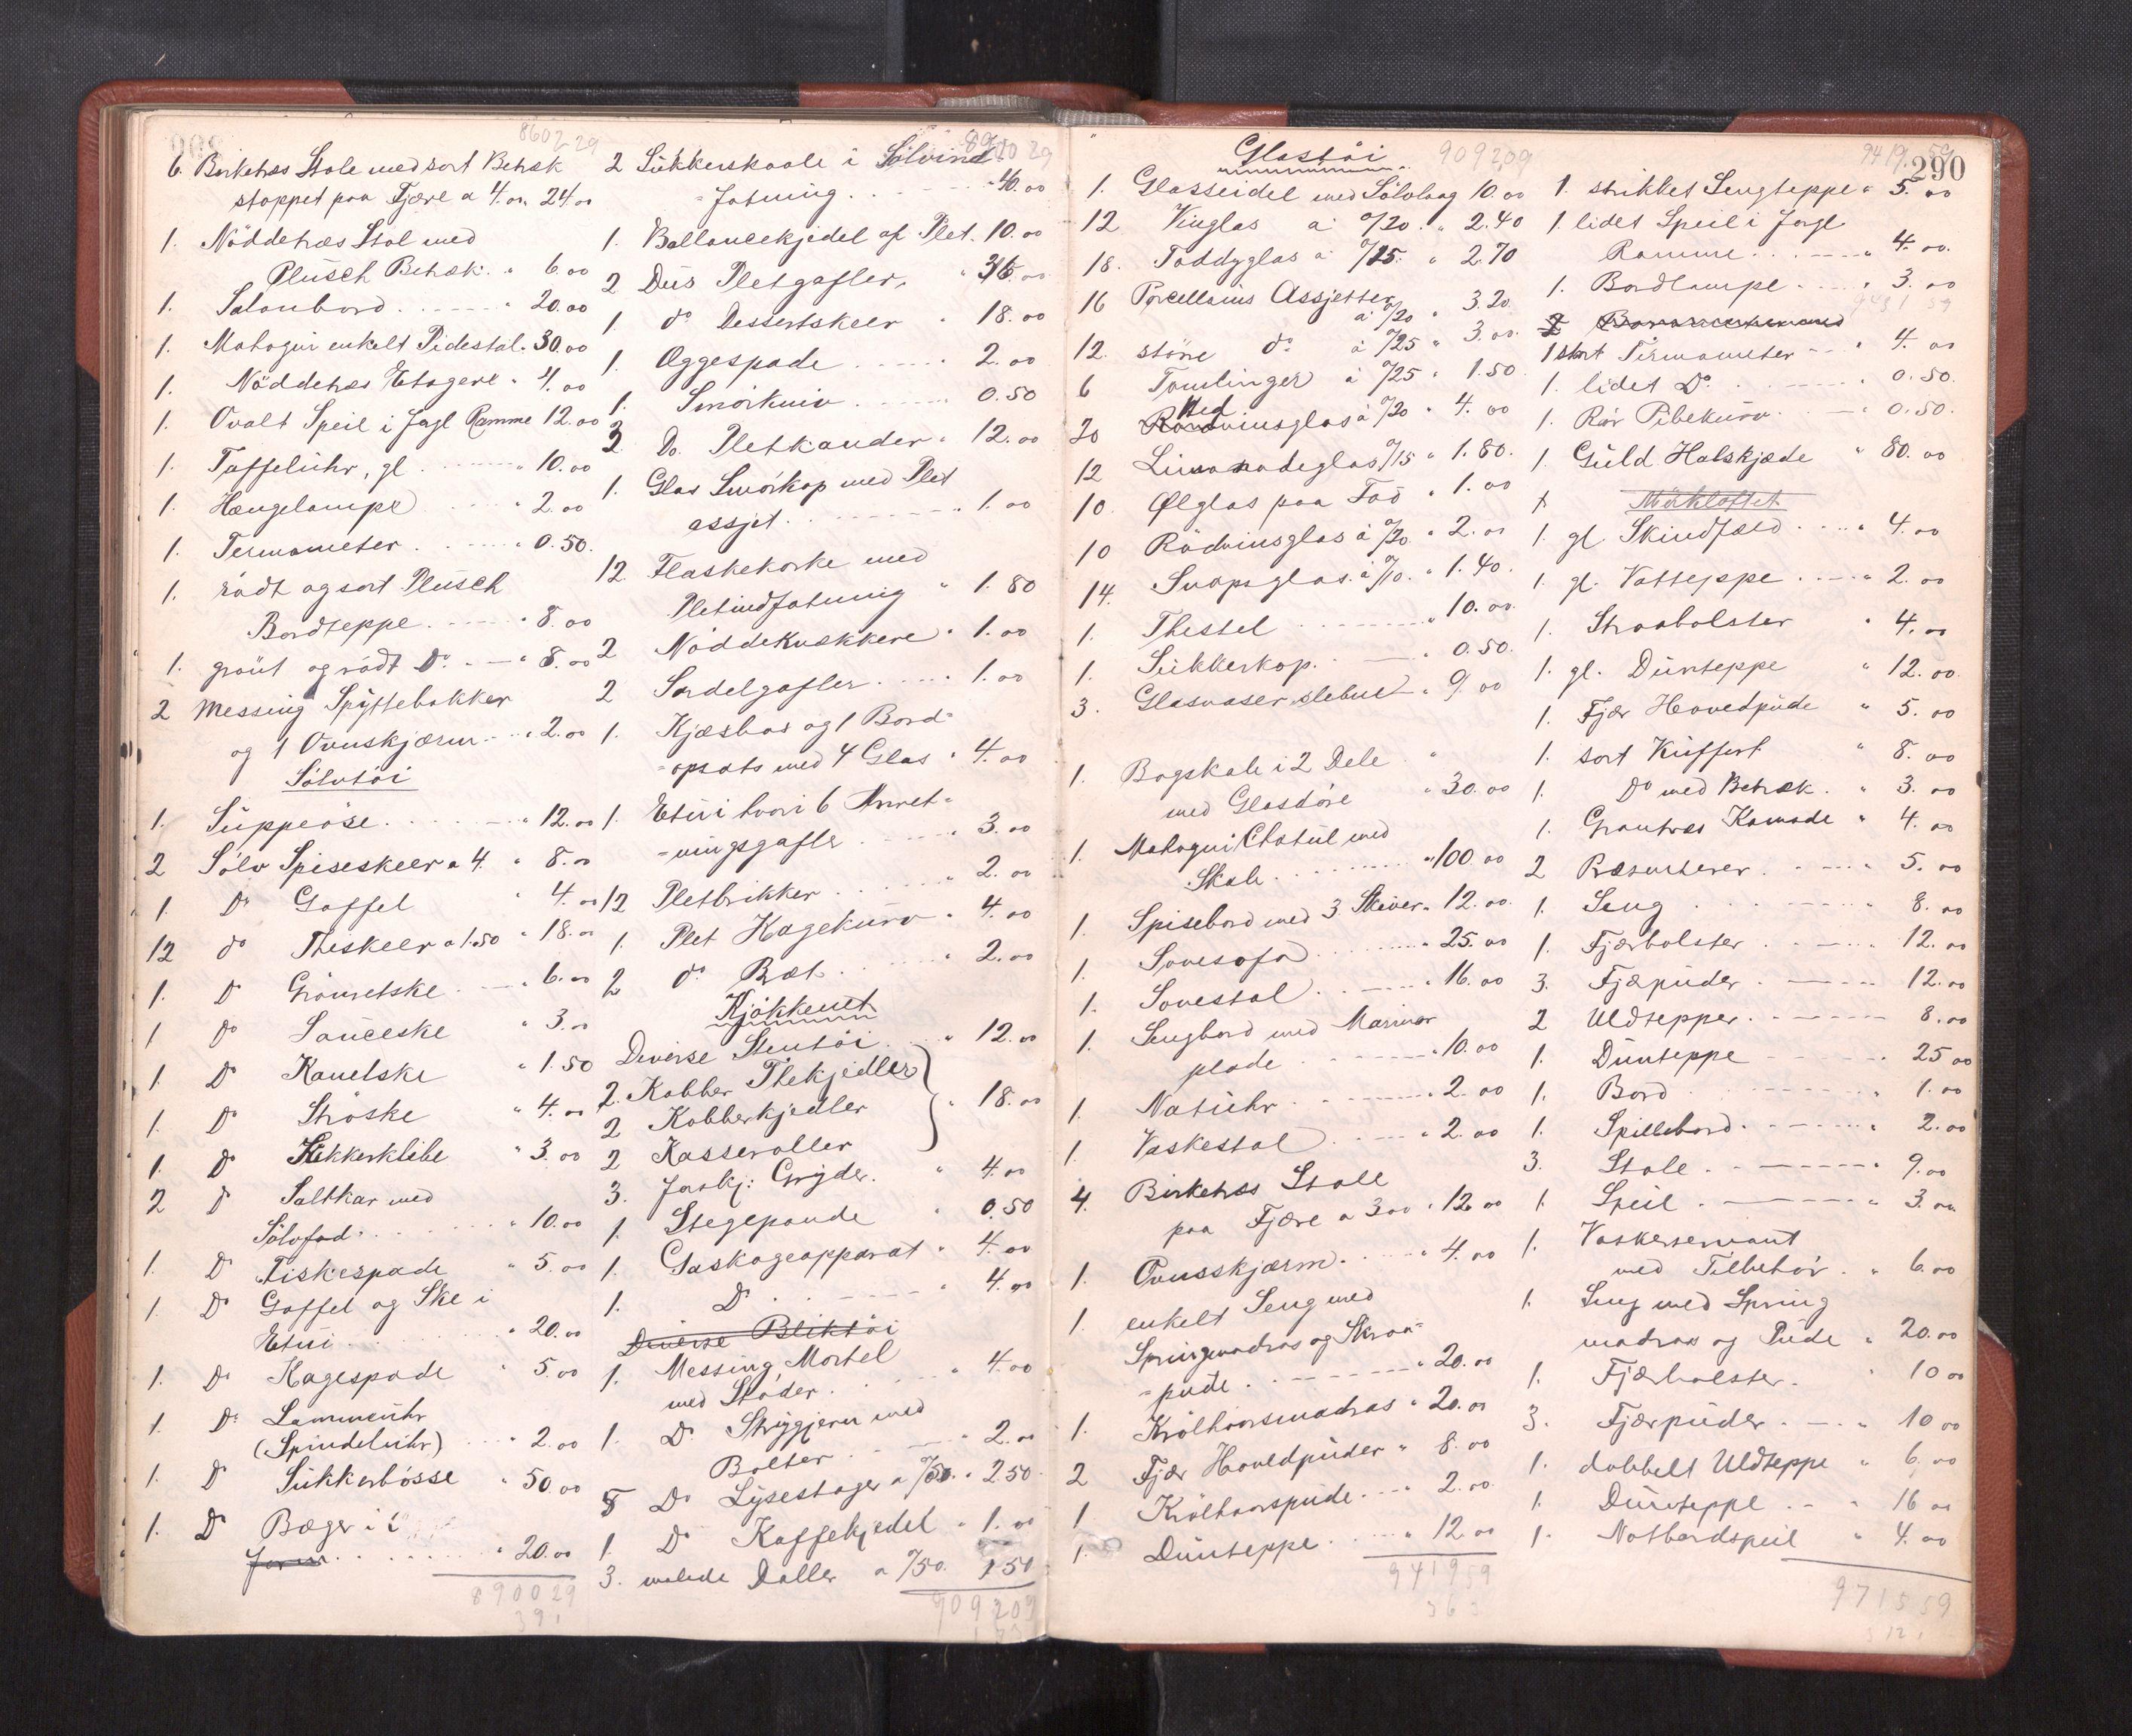 8602 29
6 Birketræs Stole med sort Betræk
stoppet paa Fjære a 4.00 24.00
1. Nöddetræs Stol med
Plüsch Betræk. " 6.00
1. Salonbord " 20.00
1. Mahogni enkelt Pidestal. 30.00
1. Nöddetræs Etagere " 4.00
1. Ovalt Speil i forgl Ramme 12.00
1. Taffeluhr, gl. " 10.00
1. Hængelampe " 2.00
1. Termometer " 0.50.
1. rödt og sort Plüsch
Bordteppe. " 8.00
1. grönt og rödt Do. " 8.00
2 Messing Spyttebakker
og 1 Ovnskjærm " 2.00
Sölvtöi
1. Suppeöse " 12.00
2 Sölv Spiseskeer a 4. " 8.00
1. Do Gaffel " 4.00
12 do Theskeer a 1.50 " 18.00
1. D Grönsetske " 6.00
1 Do Sauceske " 3.00
1. Do Kanelske " 1.50
1. Do Ströske " 4.00
1. Do Sukkerklibe " 3.00
2 D Saltkar med
Sölvfad. " 10.00
1. D Fiskespade " 5.00
1. Do Gaffel og Ske i
Etui " 20.00
1. Do Kagespade " 5.00
1. Do Lommeuhr
(Spindeluhr) " 2.00
1. D Sukkerbösse " 50.00
1. Do Bæger i
" 20.00
8900 29
89,00 29
2 Sukkerskaale i Sölvind-
-fatning " 40.00
1. Ballancekjedel af Plet. 10.00
2 Dus Pletgafler " 36.00
1 do Dessertskeer " 18.00
1. Æggespade " 2.00
1. Smörkniv 0.50
2 Do. Pletkander " 12.00
1. Glas Smörkop med Plet
assjet " 1.00
12 Flaskekorke med
Pletindfatning " 1.80
2 Nöddeknækkere " 1.00
2 Sardelgafler " 1.00
1. og 1 Bord-
-opsats med 4 Glas " 4.00
1. Etui hvori 6 Anret-
-ningsgafler " 3.00
12 Pletbrikker " 2.00
1. Plet Kagekurv " 4.00
2 do Bæt " 2.00
Kjökkenet
Diverse Stentöi " 12.00
2. Kobber Thekjedler
2 Kobberkjedler " 18.00
2 Kasseroller
3. forskj: Gryder. " 4.00
1. Stegepande " 0.50
1. Gaskogeapparat " 4.00
1. Do " 4.00
Diverse Bliktöi
1. Messing Mortel
med Stöder " 4.00
1. Do Strygjern med
Bolter " 2.00
5 Do Lysestager a %50. " 2.50
1. Do Kaffekjedel " 1.00
3. malede Daller a %50. 1.50
9092 09
Glastöi
9092,09
1. Glasseidel med Sölvlaag 10.00
12 Vinglas a %20. " 2.40
18. Toddyglas a %15. " 2.70
16 Porcellains Assjetter
a %20 " 3.20.
12. större do a %25 " 3.00.
6 Tomlinger a %25 " 1.50
20 Hvidvinsglas a %20 " 4.00
12 Limonadeglas %15 " 1.80.
10. Ølglas paa Fod " 1.00
10 Rödvinsglas a %20. " 2.00
14. Snapsglas a %10. " 1.40.
1. Thestel " 10.00.
1. Sukkerkop. " 0.50.
3. Glasvaser slebne " 9.00
1. Bogskab i 2 Dele
med Glasdöre " 30.00
1. Mahogni Chatul med
Skab " 100.00
1. Spisebord med 3 Skiver " 12.00.
1. Sovesofa " 25.00
1. Sovestol " 16.00
1. Sengbord med Marmor
plade " 10.00
1. Natuhr " 2.00
1. Vaskestol " 2.00
4. Birketræs Stole
paa Fjære a 3.00 " 12.00
1. Ovnsskjærm. " 4.00
1. enkelt Seng med
Springmadras og Skraa-
-pude " 20.00
1. Krölhaarsmadras " 20.00
2 Fjær Hovedpuder " 8.00
1 Krölhaarspude " 2.00.
1. Dunteppe " 12.00
9419 59
9419,59
290
1. strikket Sengteppe " 5.00
1. lidet Speil i forgl
Ramme " 4.00.
1. Bordlampe " 3.00
9431 59
1 stort Termometer " 4.00
1. lidet Do. " 0.50.
1. Rör Pibekurv " 0.50.
1. Guld Halskjæde " 80.00
Mörkloftet
1. gl. Skindfæld " 4.00
1. gl. Vatteppe " 2.00
1. Straabolster " 4.00
1. gl. Dunteppe " 12.00.
1. Fjær Hovedpude " 5.00
1. sort Kuffert " 8.00
1. Do med Betræk. " 3.00
1. Grantræs Komode " 4.00
2 Præsenterer " 5.00
1. Seng 8.00
1. Fjærbolster " 12.00
3. Fjærpuder 12.00
2 Uldtepper. 8.00
1. Dunteppe 25.00
1. Bord " 1.00
1. Spillebord. " 2.00
3. Stole. " 9.00
1. Speil " 3.00
1. Vaskerservant
med Tilbehör " 6.00
1. Seng med Spring
madras og Pude " 20.00
1. Fjærbolster. " 10.00
3. Fjærpuder. " 10.00
1. dobbelt Uldteppe " 6.00
1. Dunteppe " 16.00
1. Natbordspeil " 4.00
9715 59